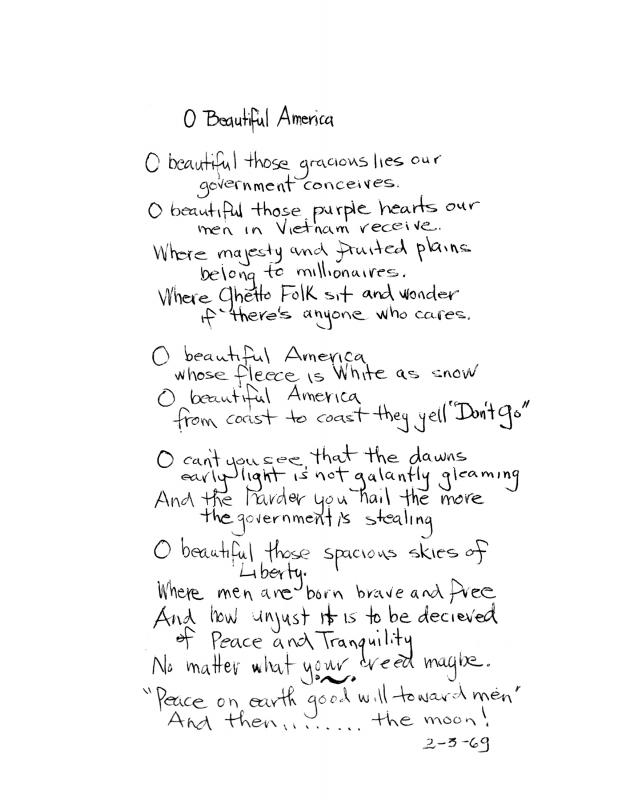 O Beautiful America
O beautiful those gracious lies our
government conceives.
O beautiful those purple hearts our
men in Vietnam receive.
Where majesty and fruited plains
belong to millionaires.
Where Ghetto Folk sit and wonder
if there's anyone who cares.
O beautiful America
whose fleece is White as snow
O beautiful America
from coast to coast they yell "Don't go"
O can't you see, that the dawns
early light is not galantly gleaming
And the harder you hail the more
the government is stealing
O beautiful those spacious skies of
Liberty.
Where men are born brave and free
And how unjust it is to be decieved
of Peace and Tranquility
No matter what your creed maybe.
"Peace on earth good will toward men"
And then........ the moon!
2-3-69